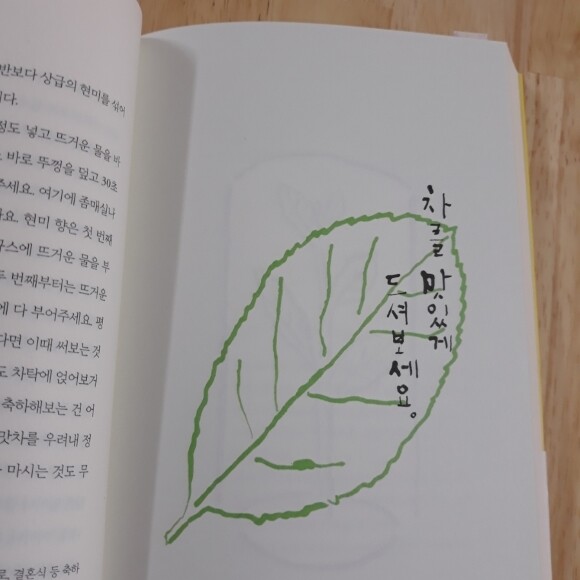 반보다 상급의 현미를 섞어
니다.
정도 넣고 뜨거운 물을 바
바로 뚜껑을 덮고 30초
주세요. 여기에 좀매실나
현미 향은 첫 번째
뜨거운 물을 부
번째부터는 뜨거운
에 다 부어주세요. 평
다면 이때 써보는 것
도 차탁에 얹어보거
축하해보는 건 어
맛차를 우려내 정
마시는 것도 무
로, 결혼식 등 축하
차를 맛있게
드셔보세요.